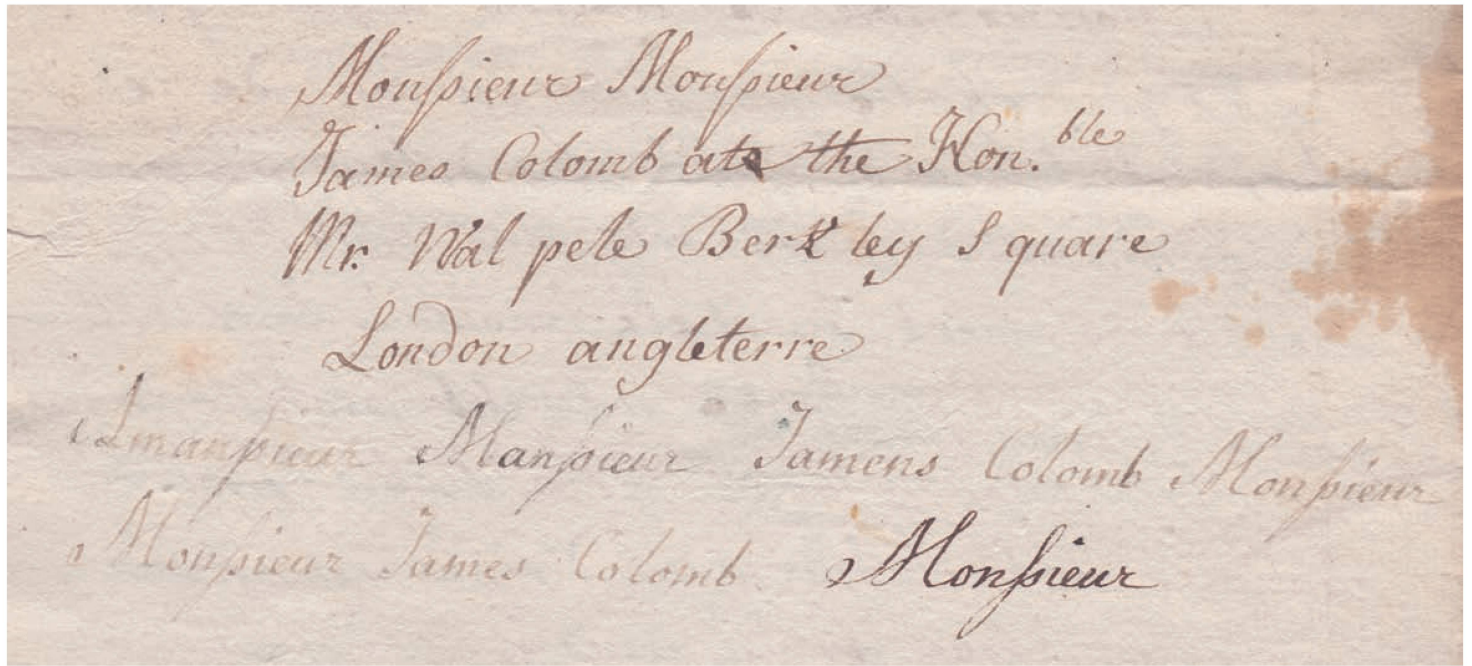 Monsieur Monsieur
James Colomb ate the Hon.ble
Mr. Wal pele Berkley Square
London angleterre
Amansieur Mansieur Jamens Colomb Monsieur
Monsieur James Colomb Monsieur